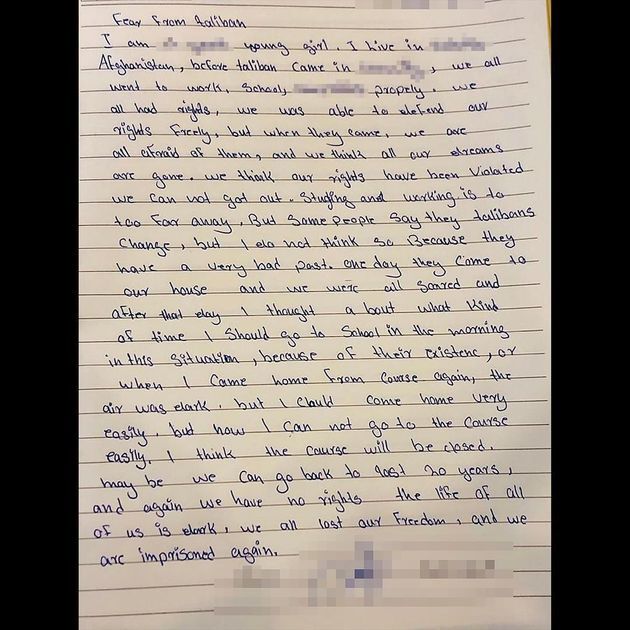 Fear From taliban
I am young girl. I live in
Afghanistan, before taliban came in , we all
went to work, school, propely. we
all had rights, we was able to defend our
rights Freely, but when they came, we are
all afraid of them, and we think all our dreams
are gone. we think our rights have been violated
we can not got out. Studing and working is to
too far away, But Some people say they talibans
change, but I do not think so Because they
have a very bad past. one day they come to
our house and we were all scared and
after that day I thought a bout what kind
of time I should go to School in the morning
in this situation, because of their existenc, or
when I came home from course again, the
air was dark. but I Could come home very
easily. but now I can not go to the course
easily. I think the course will be closed.
may be we can go back to last 20 years,
and again we have no rights the life of all
of us is dark, we all lost our freedom, and we
are imprisoned again.